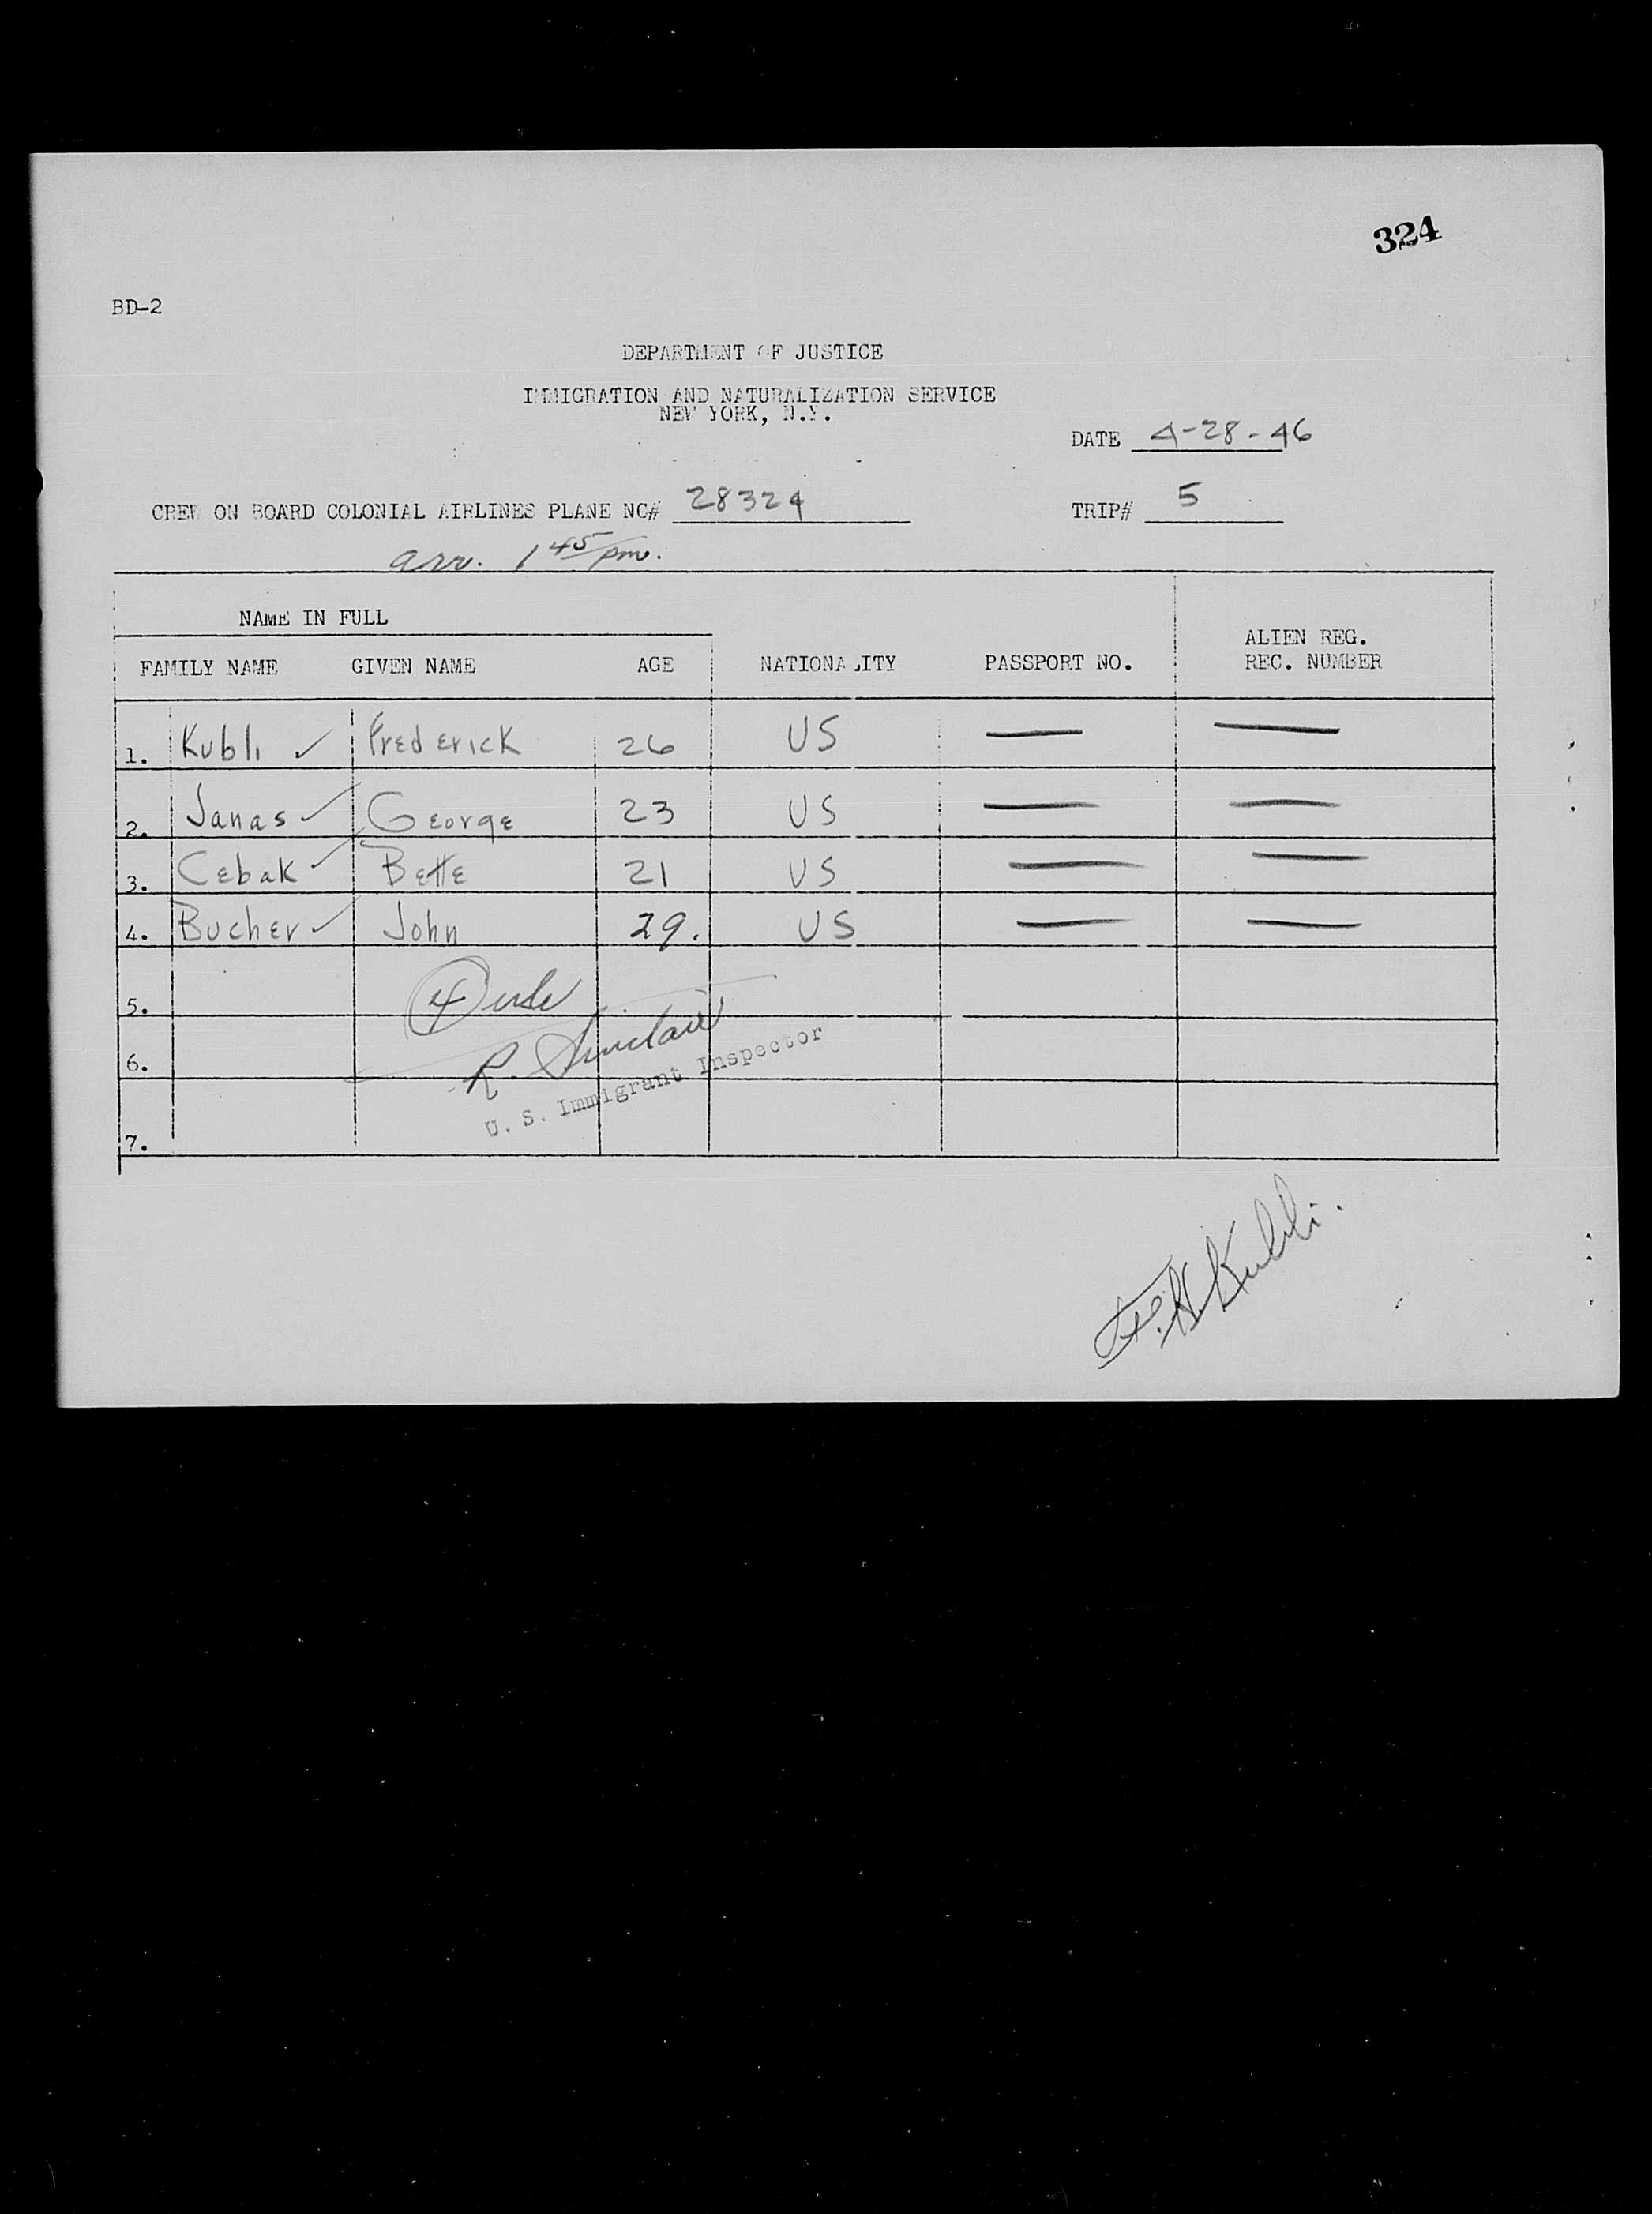 324
BD-2
DEPARTMENT OF JUSTICE
IMMIGRATION AND NATURALIZATION SERVICE
NEW YORK, N.Y.
DATE 4-28-46
CREW ON BOARD COLONIAL AIRLINES PLANE NC# 28324 TRIP# 5
arr. 1 45 pm.
NAME IN FULL
ALIEN REG.
FAMILY NAME GIVEN NAME AGE NATIONALITY PASSPORT NO. REC. NUMBER
1. Kubli ✓ Frederick 26 US — —
2. Janas ✓ George 23 US — —
3. Cebak ✓ Bette 21 US — —
4. Bucher ✓ John 29. US — —
5. 4
R. Sinclair
6.
U. S. Immigrant Inspector
7.
F. H. Kubli.